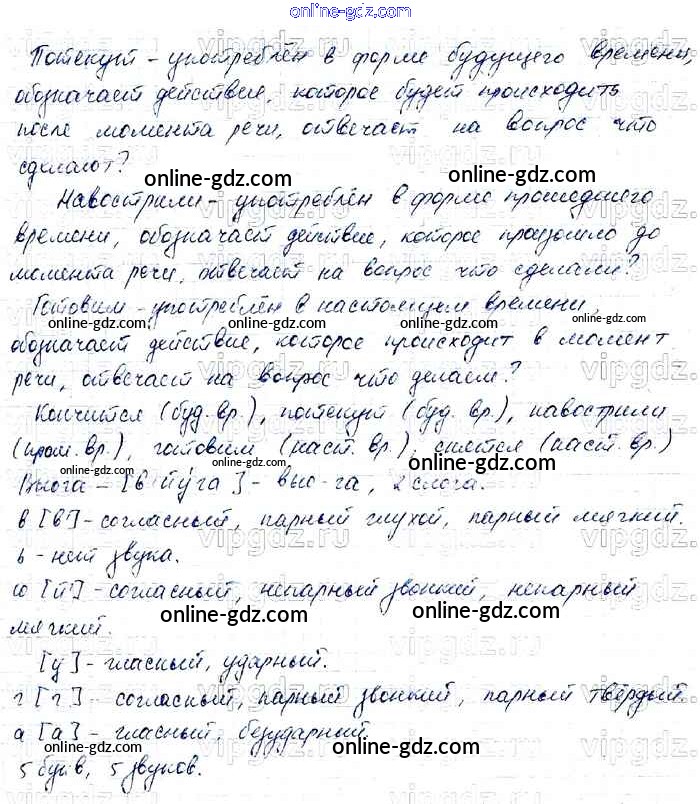 online-gdz.com
Потекут - употреблён в форме будущего времени,
обозначает действие, которое будет происходить
после момента речи, отвечает на вопрос что
сделают?
online-gdz.com online-gdz.com
Навострили - употреблён в форме прошедшего
времени, обозначает действие, которое произошло до
момента речи, отвечает на вопрос что сделали?
Готовим - употреблён в настоящем времени,
online-gdz.com online-gdz.com online-gdz.com online-gdz.com
обозначает действие, которое происходит в момент
речи, отвечает на вопрос что делаем?
Кончится (буд. вр.), потекут (буд. вр.), навострили
(прош. вр.), готовим (наст. вр.), снятся (наст. вр.)
online-gdz.com online-gdz.com online-gdz.com
Вьюга - [в' й' у́ га] - вью-га, 2 слога.
в [в'] - согласный, парный глухой, парный мягкий.
ь - нет звука.
ю [й'] - согласный, непарный звонкий, непарный
online-gdz.com online-gdz.com
мягкий.
[у] - гласный, ударный.
г [г] - согласный, парный звонкий, парный твёрдый.
а [а] - гласный, безударный.
online-gdz.com online-gdz.com online-gdz.com
5 букв, 5 звуков.
vipgdz.ru